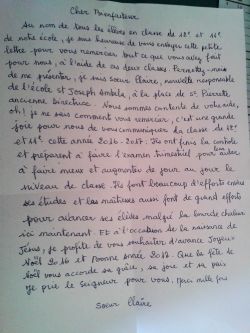 Cher Bienfaiteur
Au nom de tous les élèves en classe de 12e et 11e
de notre école, je suis heureuse de vous envoyer cette petite
lettre pour vous remercier, tout ce que vous avez fait
pour nous, à l'aide de ces deux classes. Permettez-moi
de me présenter, je suis soeur Claire, nouvelle responsable
de l'école St Joseph, à la place de Sr Pierrette
ancienne directrice. Nous sommes contente de vous aide,
oh! je ne sais comment vous remercier, c'est une grande
joie pour nous de vous communiquer la classe de 12e
et 11e cette année 2016-2017. Ils ont finis la contrôle
et préparent à faire l'examen trimestriel pour aider
à faire mieux et augmenter de jour au jour le
niveau de classe. Ils font beaucoup d'efforts envers
ses études et les maîtresses aussi font de grand efforts
pour avancer ses élèves malgré la lourde chaleur
ici maintenant. Et à l'occasion de la naissance de
Jésus, je profite de vous souhaiter d'avance Joyeux
Noël 2016 et bonne année 2017. Que la fête de
Noël vous accorde sa grâce, sa joie et sa paix
je prie le seigneur pour vous. Merci mille fois
soeur Claire